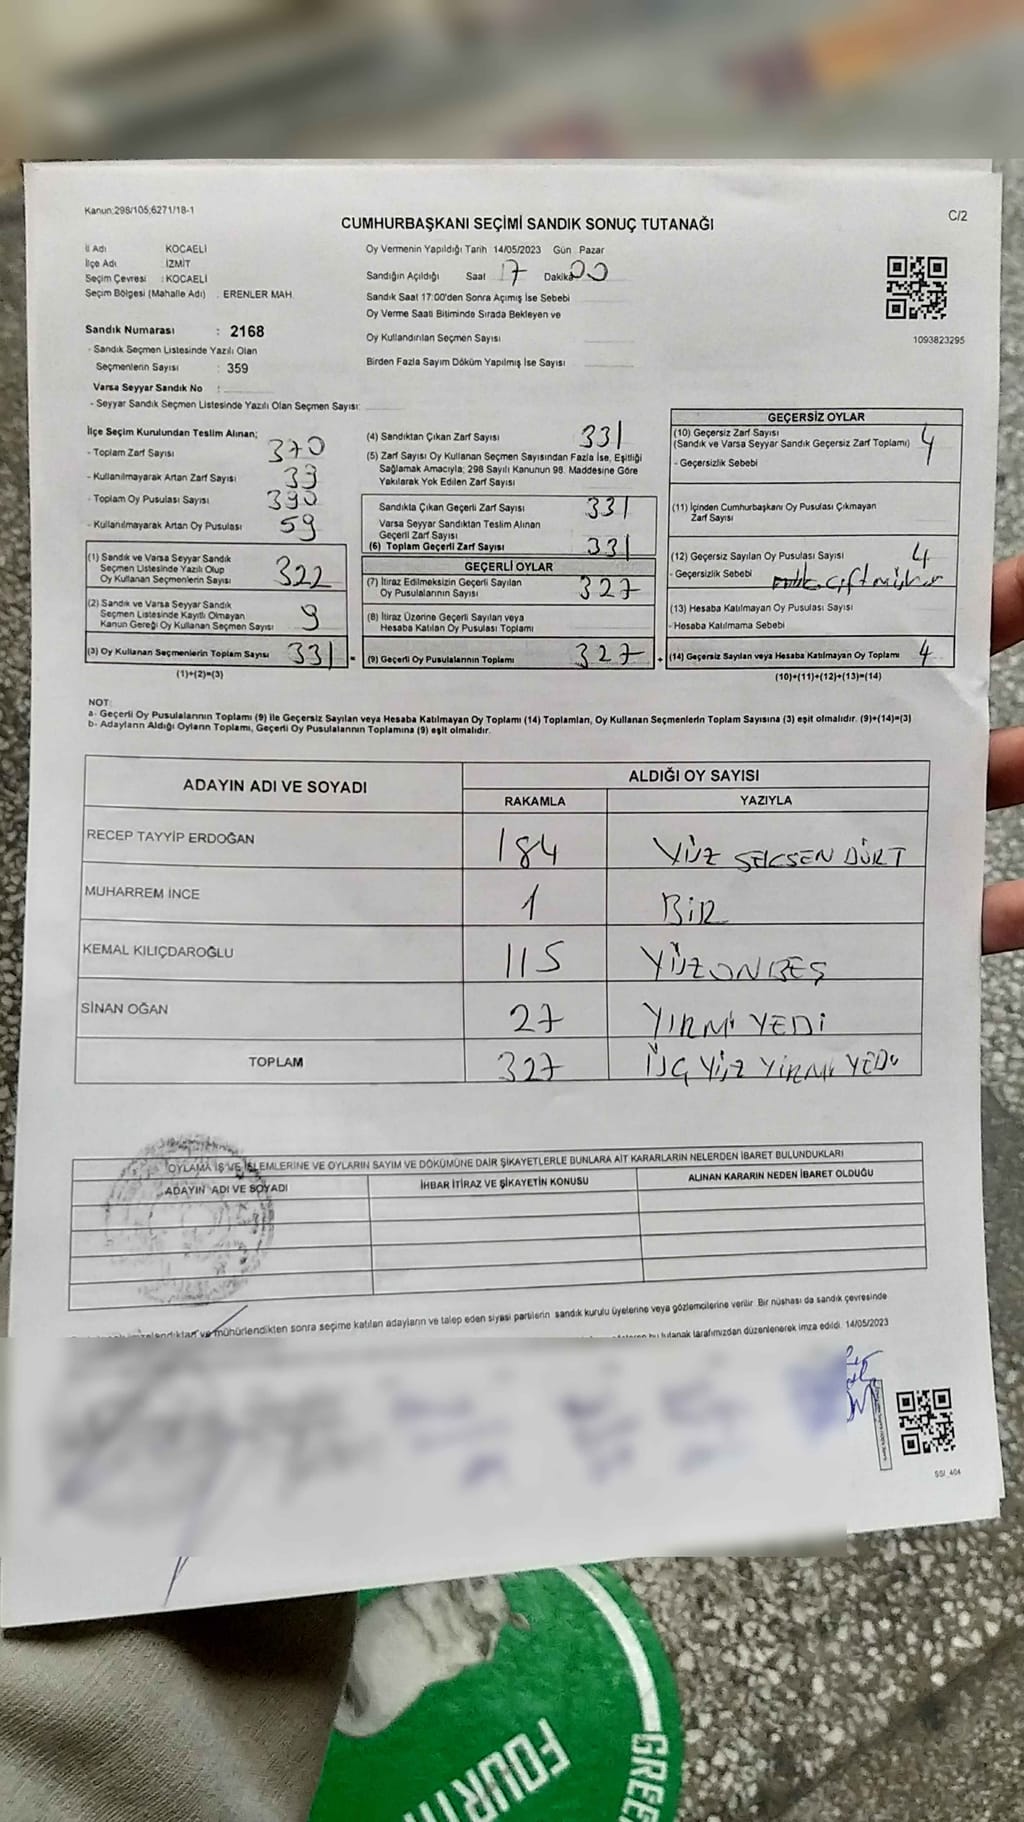 Kanun:298/105;6271/18-1
C/2
CUMHURBAŞKANI SEÇİMİ SANDIK SONUÇ TUTANAĞI
İl Adı KOCAELİ
İlçe Adı İZMİT
Seçim Çevresi : KOCAELİ
Seçim Bölgesi (Mahalle Adı) : ERENLER MAH.
Sandık Numarası : 2168
- Sandık Seçmen Listesinde Yazılı Olan
Seçmenlerin Sayısı : 359
Varsa Seyyar Sandık No :
- Seyyar Sandık Seçmen Listesinde Yazılı Olan Seçmen Sayısı:
Oy Vermenin Yapıldığı Tarih 14/05/2023 Gün Pazar
Sandığın Açıldığı Saat 17 Dakika 00
Sandık Saat 17:00'den Sonra Açımış İse Sebebi
Oy Verme Saati Bitiminde Sırada Bekleyen ve
Oy Kullandırılan Seçmen Sayısı
Birden Fazla Sayım Döküm Yapılmış İse Sayısı
1093823295
İlçe Seçim Kurulundan Teslim Alınan;
- Toplam Zarf Sayısı 370
- Kullanılmayarak Artan Zarf Sayısı 39
- Toplam Oy Pusulası Sayısı 390
- Kullanılmayarak Artan Oy Pusulası 59
(1) Sandık ve Varsa Seyyar Sandık
Seçmen Listesinde Yazılı Olup
Oy Kullanan Seçmenlerin Sayısı 322
(2) Sandık ve Varsa Seyyar Sandık
Seçmen Listesinde Kayıtlı Olmayan
Kanun Gereği Oy Kullanan Seçmen Sayısı 9
(3) Oy Kullanan Seçmenlerin Toplam Sayısı 331 =
(1)+(2)=(3)
(4) Sandıktan Çıkan Zarf Sayısı 331
(5) Zarf Sayısı Oy Kullanan Seçmen Sayısından Fazla İse, Eşitliği
Sağlamak Amacıyla; 298 Sayılı Kanunun 98. Maddesine Göre
Yakılarak Yok Edilen Zarf Sayısı
Sandıkla Çıkan Geçerli Zarf Sayısı 331
Varsa Seyyar Sandıktan Teslim Alınan
Geçerli Zarf Sayısı
(6) Toplam Geçerli Zarf Sayısı 331
GEÇERLİ OYLAR
(7) İtiraz Edilmeksizin Geçerli Sayılan
Oy Pusulalarının Sayısı 327
(8) İtiraz Üzerine Geçerli Sayılan veya
Hesaba Katılan Oy Pusulası Toplamı
(9) Geçerli Oy Pusulalarının Toplamı 327 +
GEÇERSİZ OYLAR
(10) Geçersiz Zarf Sayısı
(Sandık ve Varsa Seyyar Sandık Geçersiz Zarf Toplamı) 4
- Geçersizlik Sebebi
(11) İçinden Cumhurbaşkanı Oy Pusulası Çıkmayan
Zarf Sayısı
(12) Geçersiz Sayılan Oy Pusulası Sayısı 4
- Geçersizlik Sebebi çift mühür
(13) Hesaba Katılmayan Oy Pusulası Sayısı
- Hesaba Katılmama Sebebi
(14) Geçersiz Sayılan veya Hesaba Katılmayan Oy Toplamı 4
(10)+(11)+(12)+(13)=(14)
NOT:
a- Geçerli Oy Pusulalarının Toplamı (9) ile Geçersiz Sayılan veya Hesaba Katılmayan Oy Toplamı (14) Toplamları, Oy Kullanan Seçmenlerin Toplam Sayısına (3) eşit olmalıdır. (9)+(14)=(3)
b- Adayların Aldığı Oyların Toplamı, Geçerli Oy Pusulalarının Toplamına (9) eşit olmalıdır.
ADAYIN ADI VE SOYADI ALDIĞI OY SAYISI
RAKAMLA YAZIYLA
RECEP TAYYİP ERDOĞAN 184 YÜZ SEKSEN DÖRT
MUHARREM İNCE 1 BİR
KEMAL KILIÇDAROĞLU 115 YÜZ ON BEŞ
SİNAN OĞAN 27 YİRMİ YEDİ
TOPLAM 327 ÜÇ YÜZ YİRMİ YEDİ
OYLAMA İŞ VE İŞLEMLERİNE VE OYLARIN SAYIM VE DÖKÜMÜNE DAİR ŞİKAYETLERLE BUNLARA AİT KARARLARIN NELERDEN İBARET BULUNDUKLARI
ADAYIN ADI VE SOYADI İHBAR İTİRAZ VE ŞİKAYETİN KONUSU ALINAN KARARIN NEDEN İBARET OLDUĞU
mühürlendikten sonra seçime katılan adayların ve talep eden siyasi partilerin sandık kurulu üyelerine veya gözlemcilerine verilir. Bir nüshası da sandık çevresinde
bu tutanak tarafımızdan düzenlenerek imza edildi. 14/05/2023
SSI_404
FOURTH
GREE